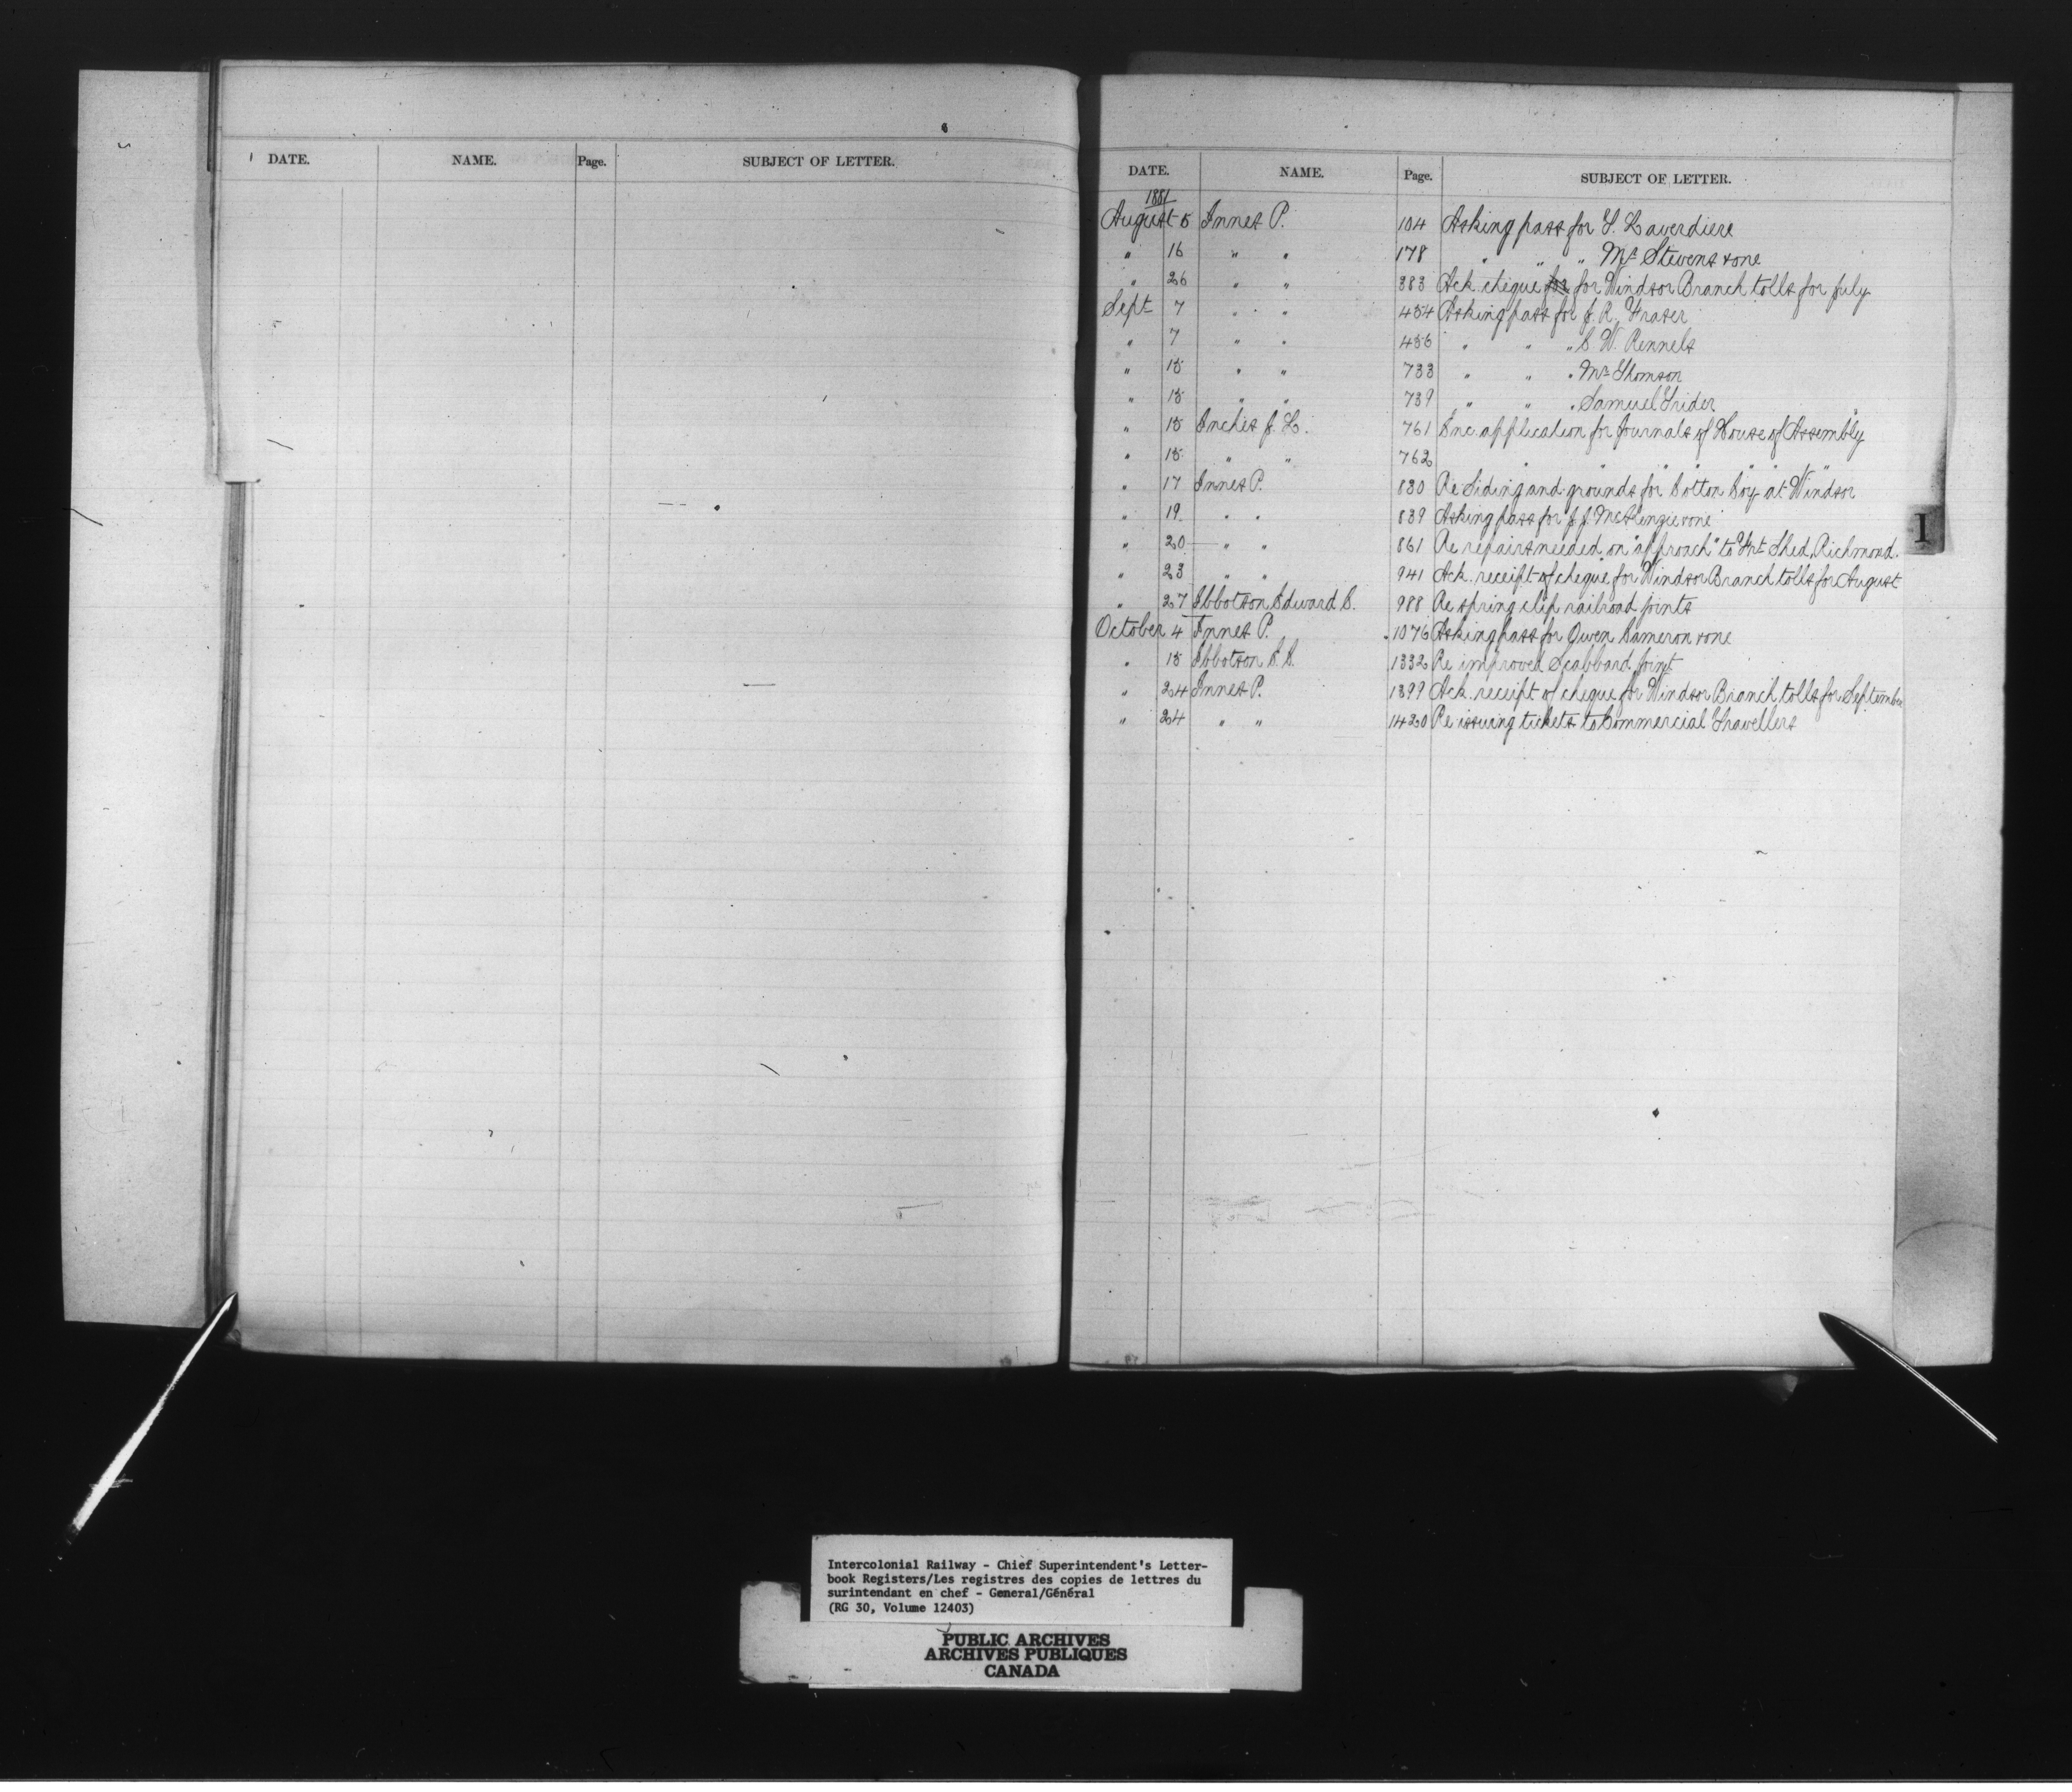 DATE. NAME. Page. SUBJECT OF LETTER.
DATE. NAME. Page. SUBJECT OF LETTER.
1881
August 5 Innes P. 104 Asking pass for T. Laverdiere
" 16 " " 178 " " " Mr Stevens & one
" 26 " " 383 Ack. cheque for for Windsor Branch tolls for July
Sept 7 " " 454 Asking pass for J. R. Fraser
" 7 " " 456 " " " C. W. Rennels
" 15 " " 733 " " " Mr Thomson
" 15 " " 739 " " " Samuel Trider
" 15 Inches J. L. 761 Enc. application for Journals of House of Assembly
" 15 " " 762 " " " " " " "
" 17 Innes P. 830 Re Siding and grounds for Cotton Coy at Windsor
" 19 " " 839 Asking pass for J. J. McKenzie & one
" 20 " " 861 Re repairs needed on "approach" to Frt Shed, Richmond.
" 23 " " 941 Ack. receipt of cheque for Windsor Branch tolls for August
" 27 Ibbotson Edward C. 988 Re spring clip railroad joints
October 4 Innes P. 1076 Asking pass for Owen Cameron & one
" 15 Ibbotson E. C. 1332 Re improved Scabbard joint
" 24 Innes P. 1399 Ack. receipt of cheque for Windsor Branch tolls for September
" 24 " " 1420 Re issuing tickets to Commercial Travellers
I
Intercolonial Railway - Chief Superintendent's Letter-
book Registers/Les registres des copies de lettres du
surintendant en chef - General/Général
(RG 30, Volume 12403)
PUBLIC ARCHIVES
ARCHIVES PUBLIQUES
CANADA